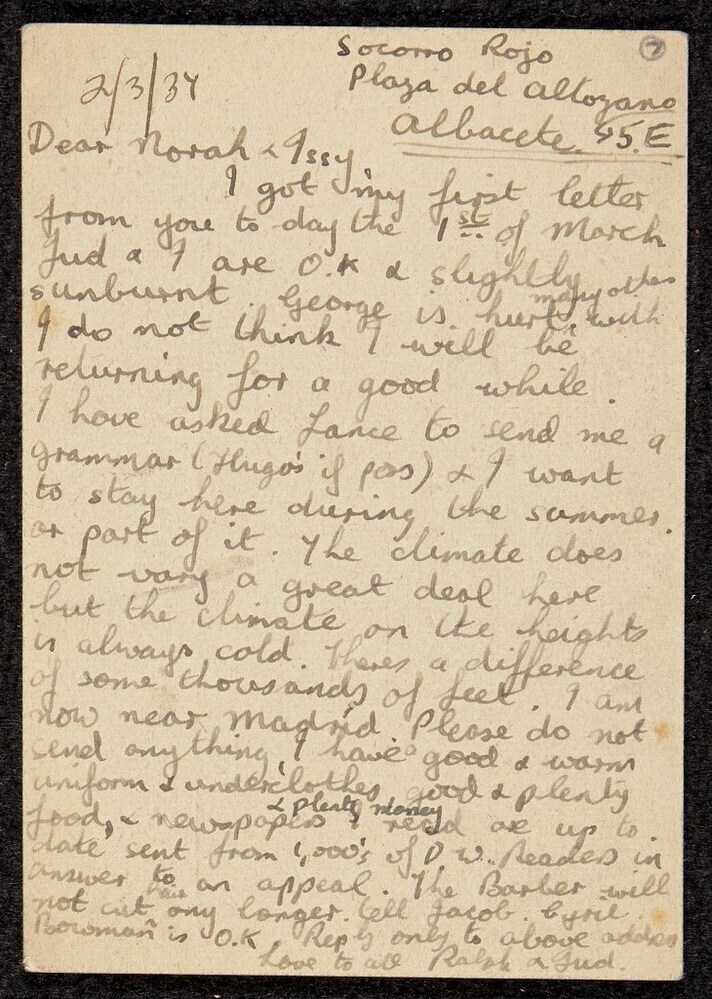 Socorro Rojo
7
Plaza del altozano
2/3/37
albacete. 45.E
Dear Norah & Issy
I got my first letter
from you to day the 1st of March
Jud & I are O.K & slightly
sunburnt. George is hurt, with
many others
I do not think I will be
returning for a good while.
I have asked Lance to send me a
grammar (Hugo's if poss) & I want
to stay here during the summer.
or part of it. The climate does
not vary a great deal here
but the climate on the heights
is always cold. Theres a difference
of some thousands of feet. I am
now near Madrid. Please do not
send anything, I have a good & warm
uniform & underclothes, good & plenty
& plenty money
food, & newspapers I read are up to
date sent from 1,000's of D.W. Readers in
answer to an appeal. The Barber will
not cut hair any longer. tell Jacob. Cyril
Bowman is O.K Reply only to above address
Love to all Ralph & Jud.